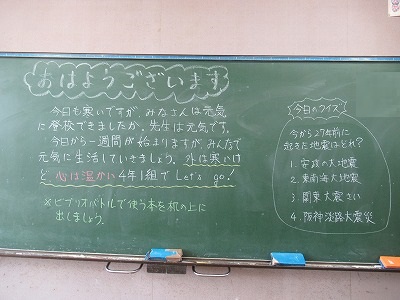 おはようございます
今日も寒いですが、みなさんは元気
に登校できましたか。先生は元気です。
今日から一週間が始まりますが、みんなで
元気に生活していきましょう。外は寒いけ
ど 心は温かい 4年1組で Let's go!
※ビブリオバトルで使う本を机の上に
出しましょう。
今日のクイズ
今から27年前に
起きた地震はどれ?
1. 安政の大地震
2. 東南海大地震
3. 関東大震さい
4. 阪神淡路大震災